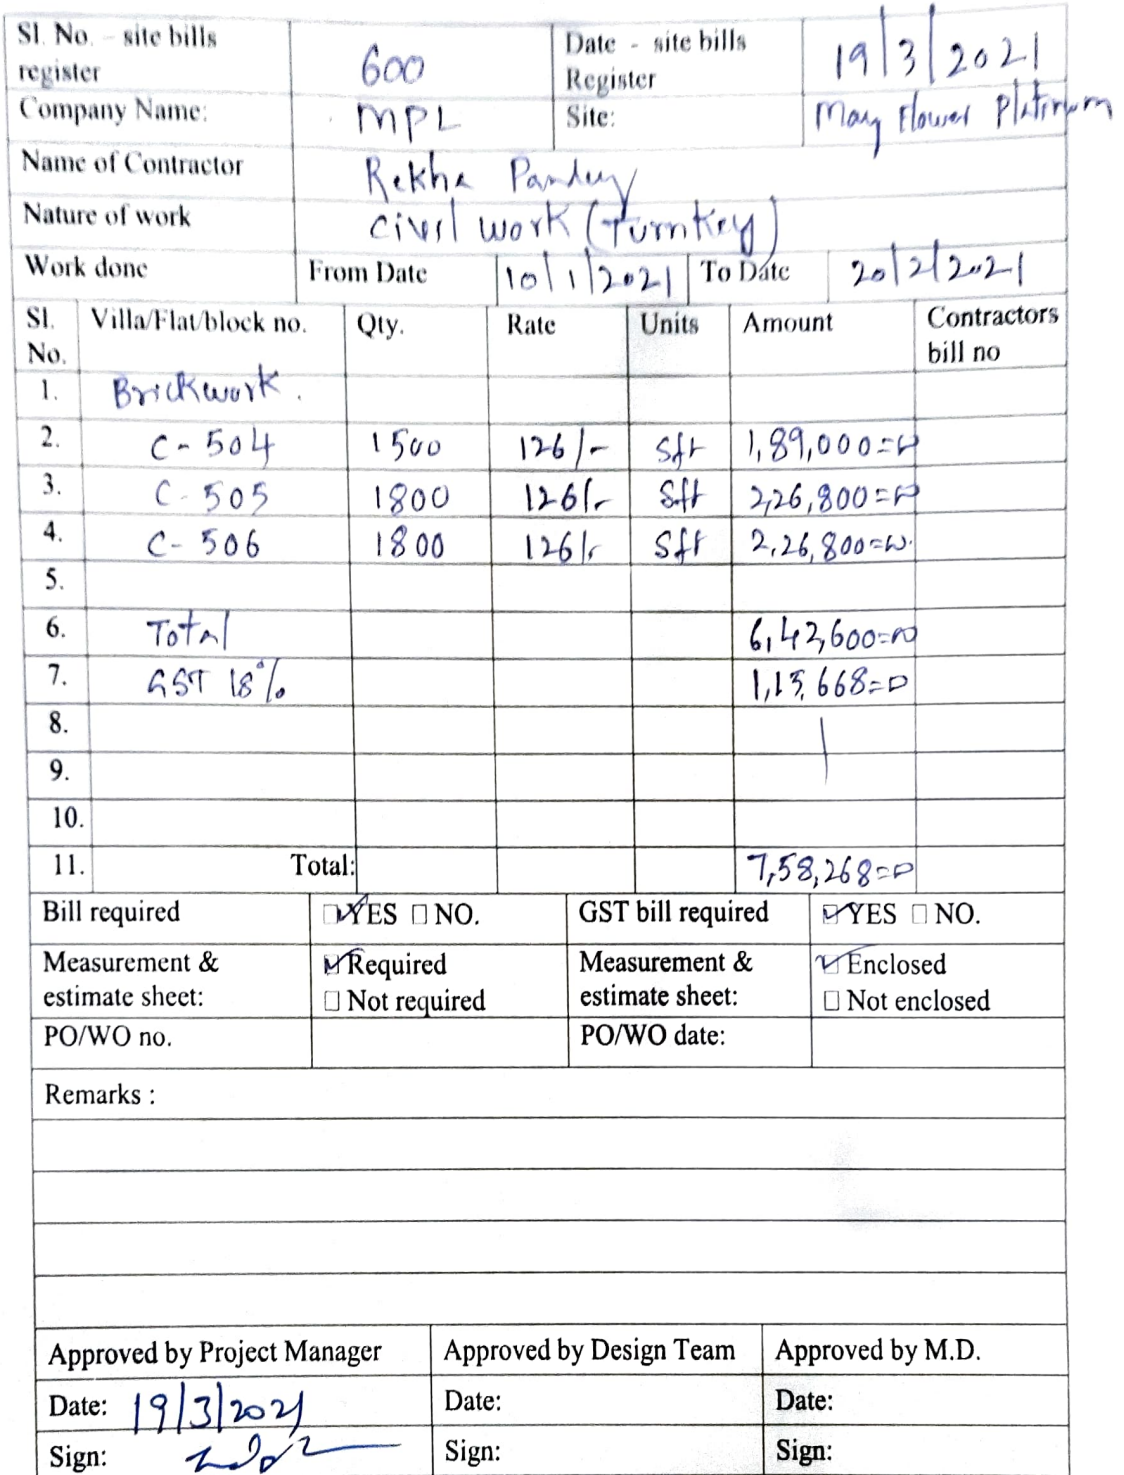 Sl. No. - site bills register 600 Date - site bills Register 19/3/2021
Company Name: MPL Site: May Flower Platinum
Name of Contractor Rekha Pandey
Nature of work Civil work (Turnkey)
Work done From Date 10/1/2021 To Date 20/2/2021
Sl. No. Villa/Flat/block no. Qty. Rate Units Amount Contractors bill no
1. Brickwork.
2. C-504 1500 126/- Sft 1,89,000=00
3. C-505 1800 126/- Sft 2,26,800=00
4. C-506 1800 126/- Sft 2,26,800=00
5.
6. Total 6,42,600=00
7. GST 18% 1,15,668=00
8.
9.
10.
11. Total: 7,58,268=00
Bill required YES NO. GST bill required YES NO.
Measurement & estimate sheet: Required Not required Measurement & estimate sheet: Enclosed Not enclosed
PO/WO no. PO/WO date:
Remarks :
Approved by Project Manager Approved by Design Team Approved by M.D.
Date: 19/3/2021 Date: Date:
Sign: Sign: Sign: